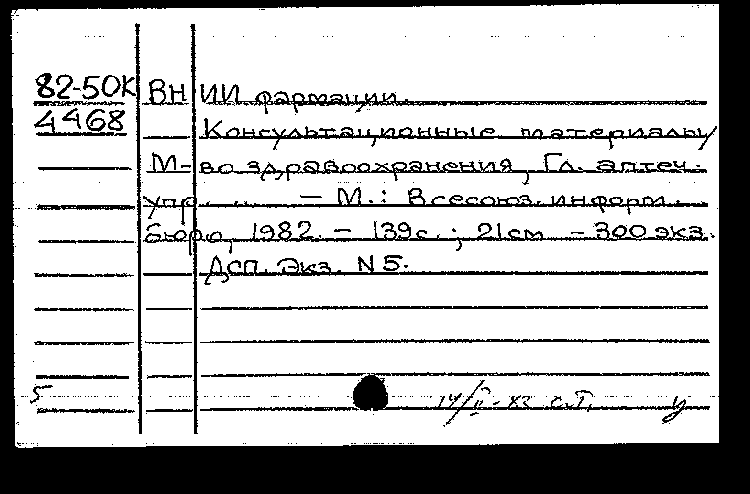 82-50К ВНИИ фармации.
4468 Консультационные материалы/
М-во здравоохранения, Гл. аптеч.
упр. ... — М.: Всесоюз. информ.
бюро, 1982. — 139с.; 21см — 300 экз.
Дсп. Экз. N 5.
5 14/II-83 с.Т. У